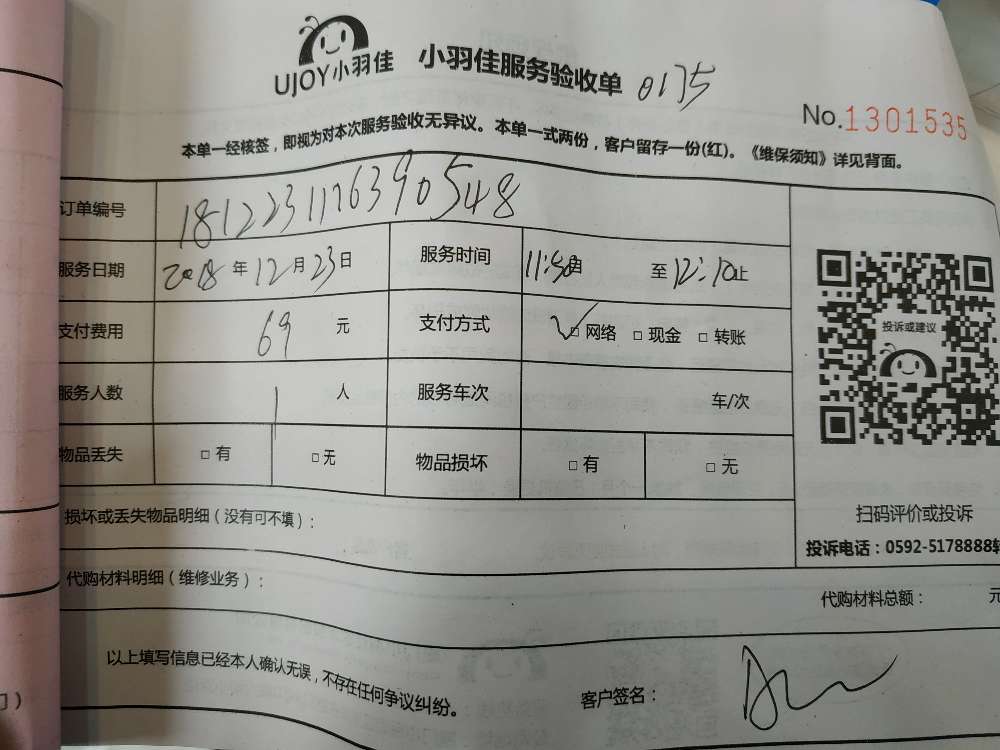 UJOY小羽佳 小羽佳服务验收单 0175
No.1301535
本单一经核签，即视为对本次服务验收无异议。本单一式两份，客户留存一份(红)。《维保须知》详见背面。
订单编号 1812231176390548
服务日期 2018年12月23日 服务时间 11:50自 至12:10止
支付费用 69元 支付方式 ✓□网络 □现金 □转账
服务人数 1人 服务车次 车/次
物品丢失 □有 □无 物品损坏 □有 □无
投诉或建议
扫码评价或投诉
投诉电话：0592-5178888转
损坏或丢失物品明细（没有可不填）：
代购材料明细（维修业务）：
代购材料总额： 元
以上填写信息已经本人确认无误，不存在任何争议纠纷。
客户签名：